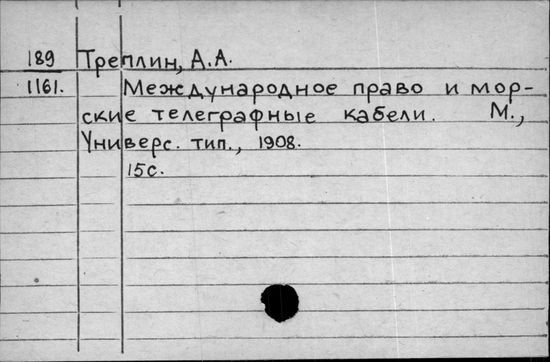 189 Треплин, А.А.
1161. Международное право и мор-
ские телеграфные кабели. М.,
Универс. тип., 1908.
15с.